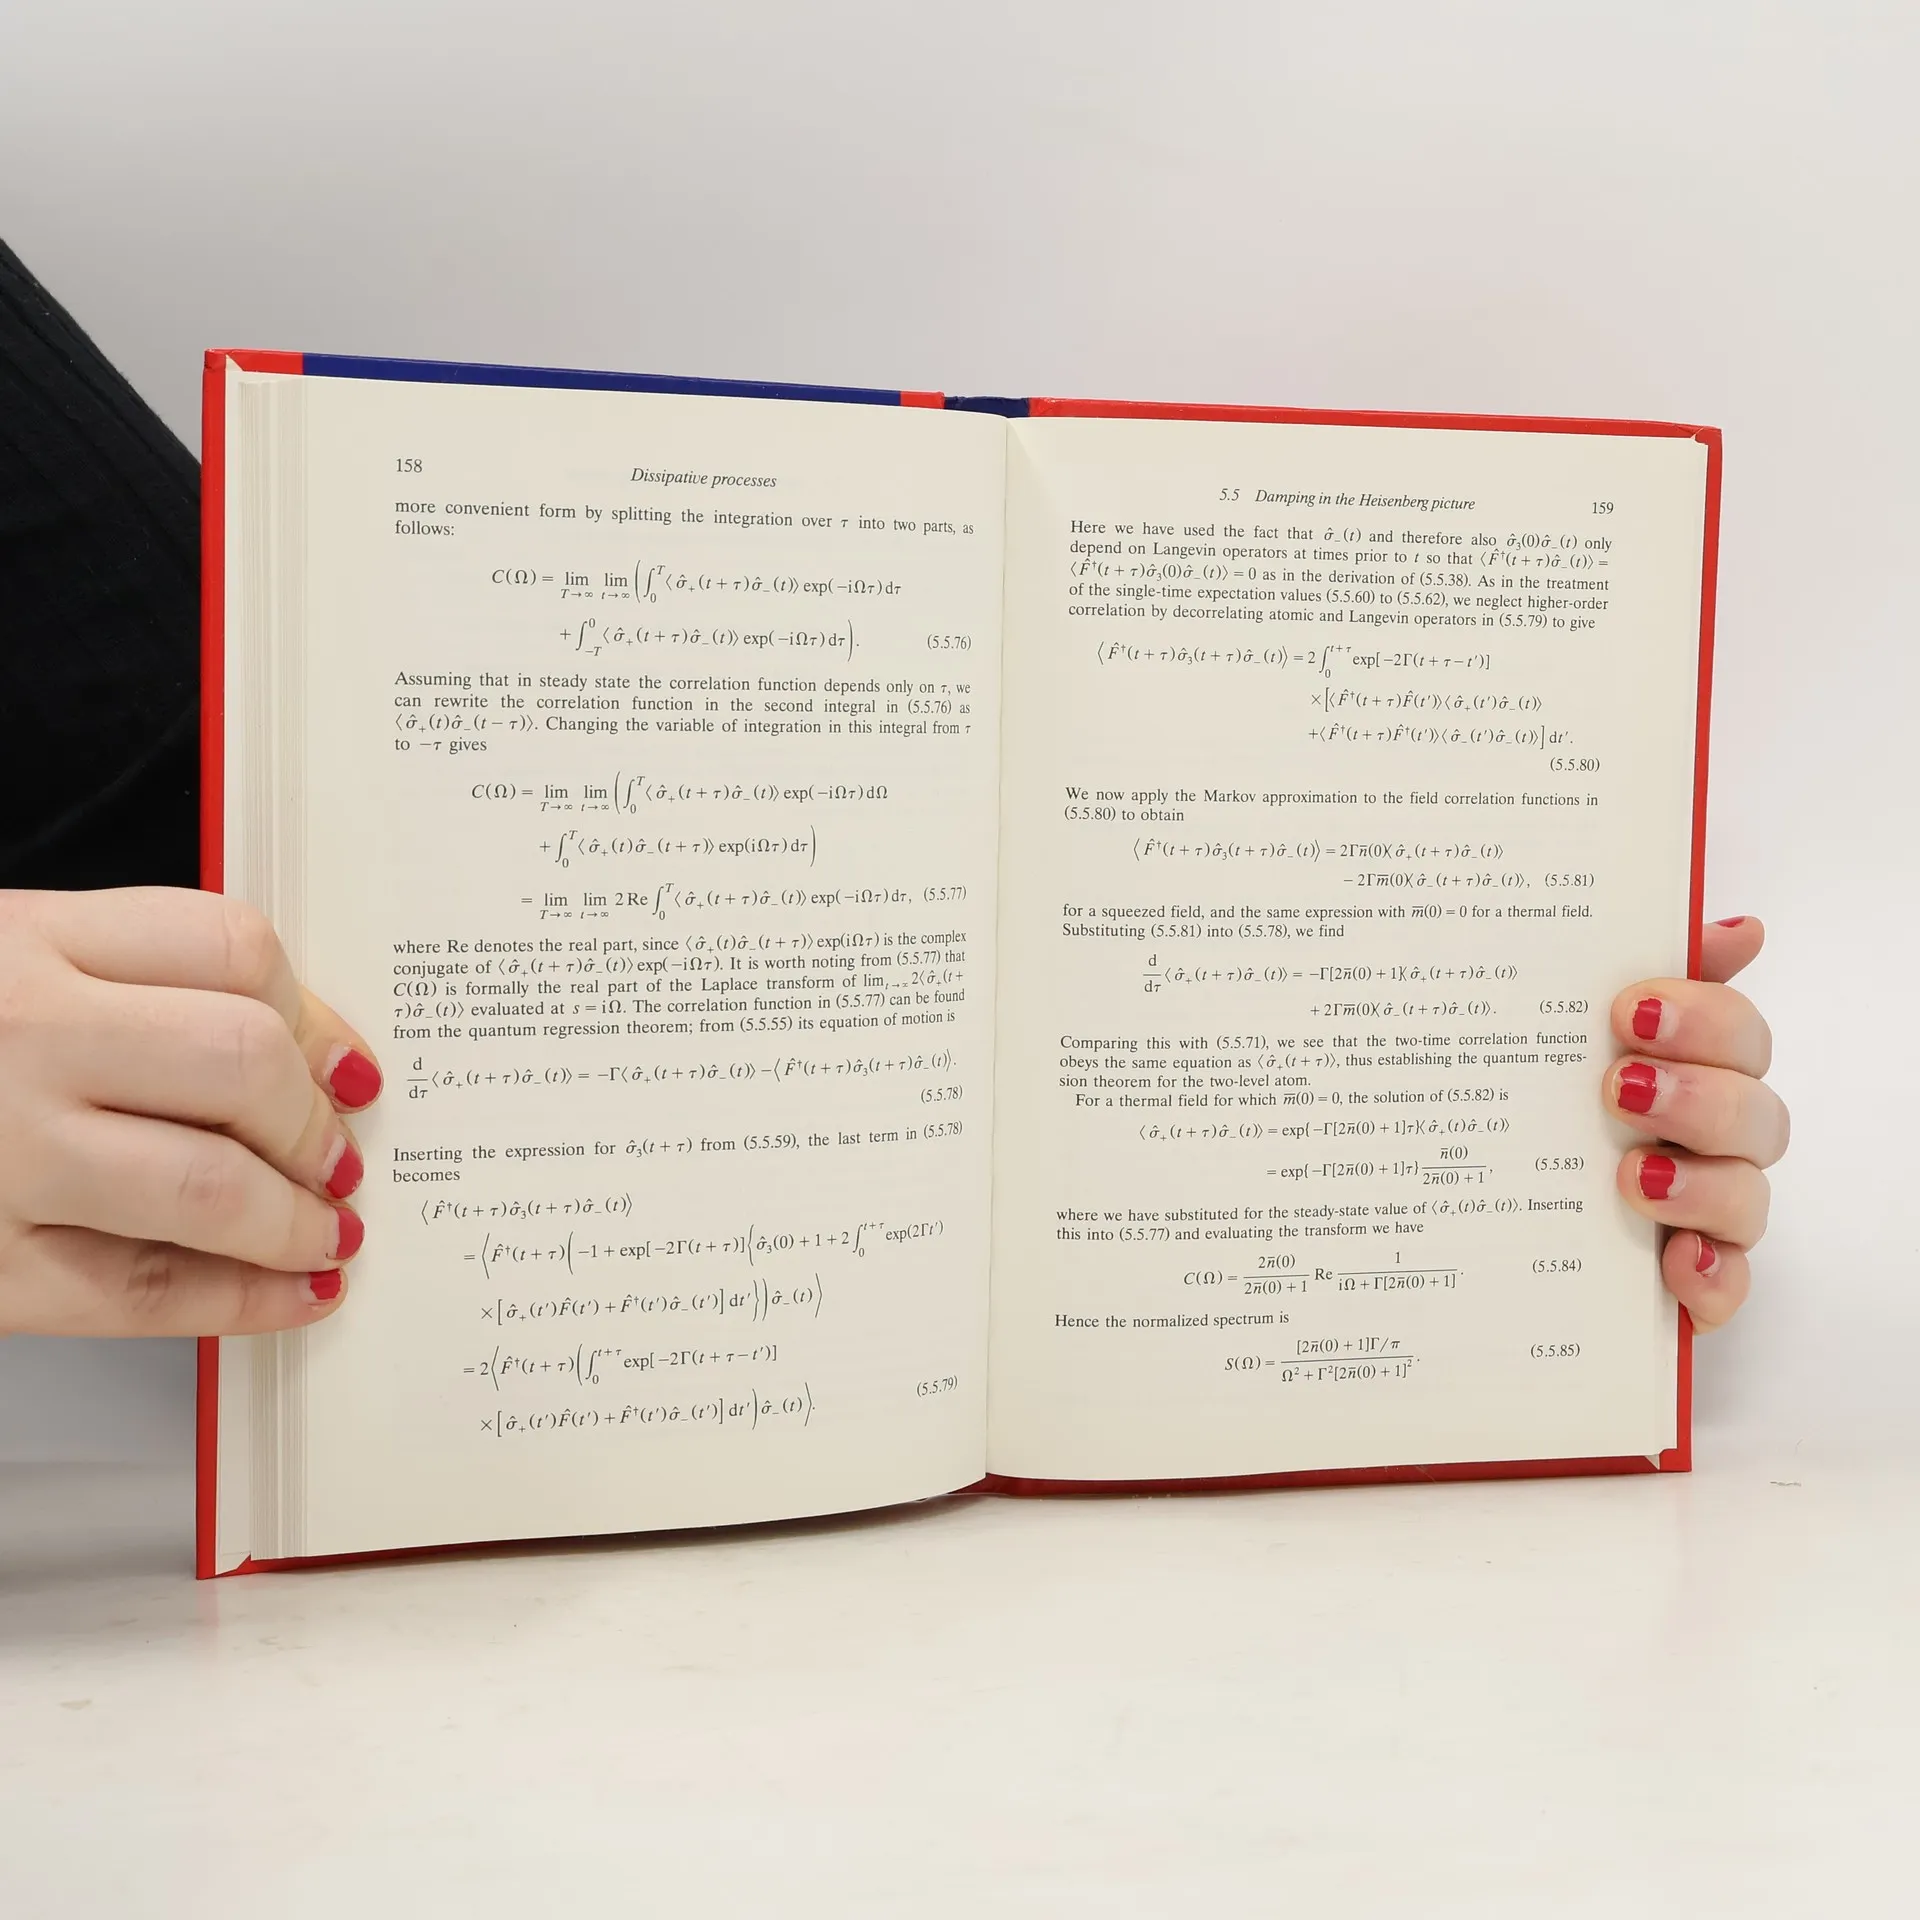 158
Dissipative processes
more convenient form by splitting the integration over τ into two parts, as
follows:
C(Ω) = lim T→∞ lim t→∞ (∫₀ᵀ ⟨σ̂₊(t + τ)σ̂₋(t)⟩ exp(−iΩτ) dτ
+ ∫₋T⁰ ⟨σ̂₊(t + τ)σ̂₋(t)⟩ exp(−iΩτ) dτ). (5.5.76)
Assuming that in steady state the correlation function depends only on τ, we
can rewrite the correlation function in the second integral in (5.5.76) as
⟨σ̂₊(t)σ̂₋(t − τ)⟩. Changing the variable of integration in this integral from τ
to −τ gives
C(Ω) = lim T→∞ lim t→∞ (∫₀ᵀ ⟨σ̂₊(t + τ)σ̂₋(t)⟩ exp(−iΩτ) dΩ
+ ∫₀ᵀ ⟨σ̂₊(t)σ̂₋(t + τ)⟩ exp(iΩτ) dτ)
= lim T→∞ lim t→∞ 2 Re ∫₀ᵀ ⟨σ̂₊(t + τ)σ̂₋(t)⟩ exp(−iΩτ) dτ, (5.5.77)
where Re denotes the real part, since ⟨σ̂₊(t)σ̂₋(t + τ)⟩ exp(iΩτ) is the complex
conjugate of ⟨σ̂₊(t + τ)σ̂₋(t)⟩ exp(−iΩτ). It is worth noting from (5.5.77) that
C(Ω) is formally the real part of the Laplace transform of lim t→∞ 2⟨σ̂₊(t +
τ)σ̂₋(t)⟩ evaluated at s = iΩ. The correlation function in (5.5.77) can be found
from the quantum regression theorem; from (5.5.55) its equation of motion is
d/dτ ⟨σ̂₊(t + τ)σ̂₋(t)⟩ = −Γ⟨σ̂₊(t + τ)σ̂₋(t)⟩ − ⟨F̂†(t + τ)σ̂₃(t + τ)σ̂₋(t)⟩.
(5.5.78)
Inserting the expression for σ̂₃(t + τ) from (5.5.59), the last term in (5.5.78)
becomes
⟨F̂†(t + τ)σ̂₃(t + τ)σ̂₋(t)⟩
= ⟨F̂†(t + τ)(−1 + exp[−2Γ(t + τ)]{σ̂₃(0) + 1 + 2 ∫₀ᵗ⁺τ exp(2Γt′)
× [σ̂₊(t′)F̂(t′) + F̂†(t′)σ̂₋(t′)] dt′})σ̂₋(t)⟩
= 2⟨F̂†(t + τ)(∫₀ᵗ⁺τ exp[−2Γ(t + τ − t′)]
× [σ̂₊(t′)F̂(t′) + F̂†(t′)σ̂₋(t′)] dt′)σ̂₋(t)⟩. (5.5.79)
5.5 Damping in the Heisenberg picture 159
Here we have used the fact that σ̂₋(t) and therefore also σ̂₃(0)σ̂₋(t) only
depend on Langevin operators at times prior to t so that ⟨F̂†(t + τ)σ̂₋(t)⟩ =
⟨F̂†(t + τ)σ̂₃(0)σ̂₋(t)⟩ = 0 as in the derivation of (5.5.38). As in the treatment
of the single-time expectation values (5.5.60) to (5.5.62), we neglect higher-order
correlation by decorrelating atomic and Langevin operators in (5.5.79) to give
⟨F̂†(t + τ)σ̂₃(t + τ)σ̂₋(t)⟩ = 2 ∫₀ᵗ⁺τ exp[−2Γ(t + τ − t′)]
× [⟨F̂†(t + τ)F̂(t′)⟩⟨σ̂₊(t′)σ̂₋(t)⟩
+ ⟨F̂†(t + τ)F̂†(t′)⟩⟨σ̂₋(t′)σ̂₋(t)⟩] dt′.
(5.5.80)
We now apply the Markov approximation to the field correlation functions in
(5.5.80) to obtain
⟨F̂†(t + τ)σ̂₃(t + τ)σ̂₋(t)⟩ = 2Γn̄(0)⟨σ̂₊(t + τ)σ̂₋(t)⟩
− 2Γm̄(0)⟨σ̂₋(t + τ)σ̂₋(t)⟩, (5.5.81)
for a squeezed field, and the same expression with m̄(0) = 0 for a thermal field.
Substituting (5.5.81) into (5.5.78), we find
d/dτ ⟨σ̂₊(t + τ)σ̂₋(t)⟩ = −Γ[2n̄(0) + 1]⟨σ̂₊(t + τ)σ̂₋(t)⟩
+ 2Γm̄(0)⟨σ̂₋(t + τ)σ̂₋(t)⟩. (5.5.82)
Comparing this with (5.5.71), we see that the two-time correlation function
obeys the same equation as ⟨σ̂₊(t + τ)⟩, thus establishing the quantum regres-
sion theorem for the two-level atom.
For a thermal field for which m̄(0) = 0, the solution of (5.5.82) is
⟨σ̂₊(t + τ)σ̂₋(t)⟩ = exp{−Γ[2n̄(0) + 1]τ}⟨σ̂₊(t)σ̂₋(t)⟩
= exp{−Γ[2n̄(0) + 1]τ} n̄(0)/(2n̄(0) + 1), (5.5.83)
where we have substituted for the steady-state value of ⟨σ̂₊(t)σ̂₋(t)⟩. Inserting
this into (5.5.77) and evaluating the transform we have
C(Ω) = 2n̄(0)/(2n̄(0) + 1) Re 1/(iΩ + Γ[2n̄(0) + 1]). (5.5.84)
Hence the normalized spectrum is
S(Ω) = [2n̄(0) + 1]Γ/π / (Ω² + Γ²[2n̄(0) + 1]²). (5.5.85)